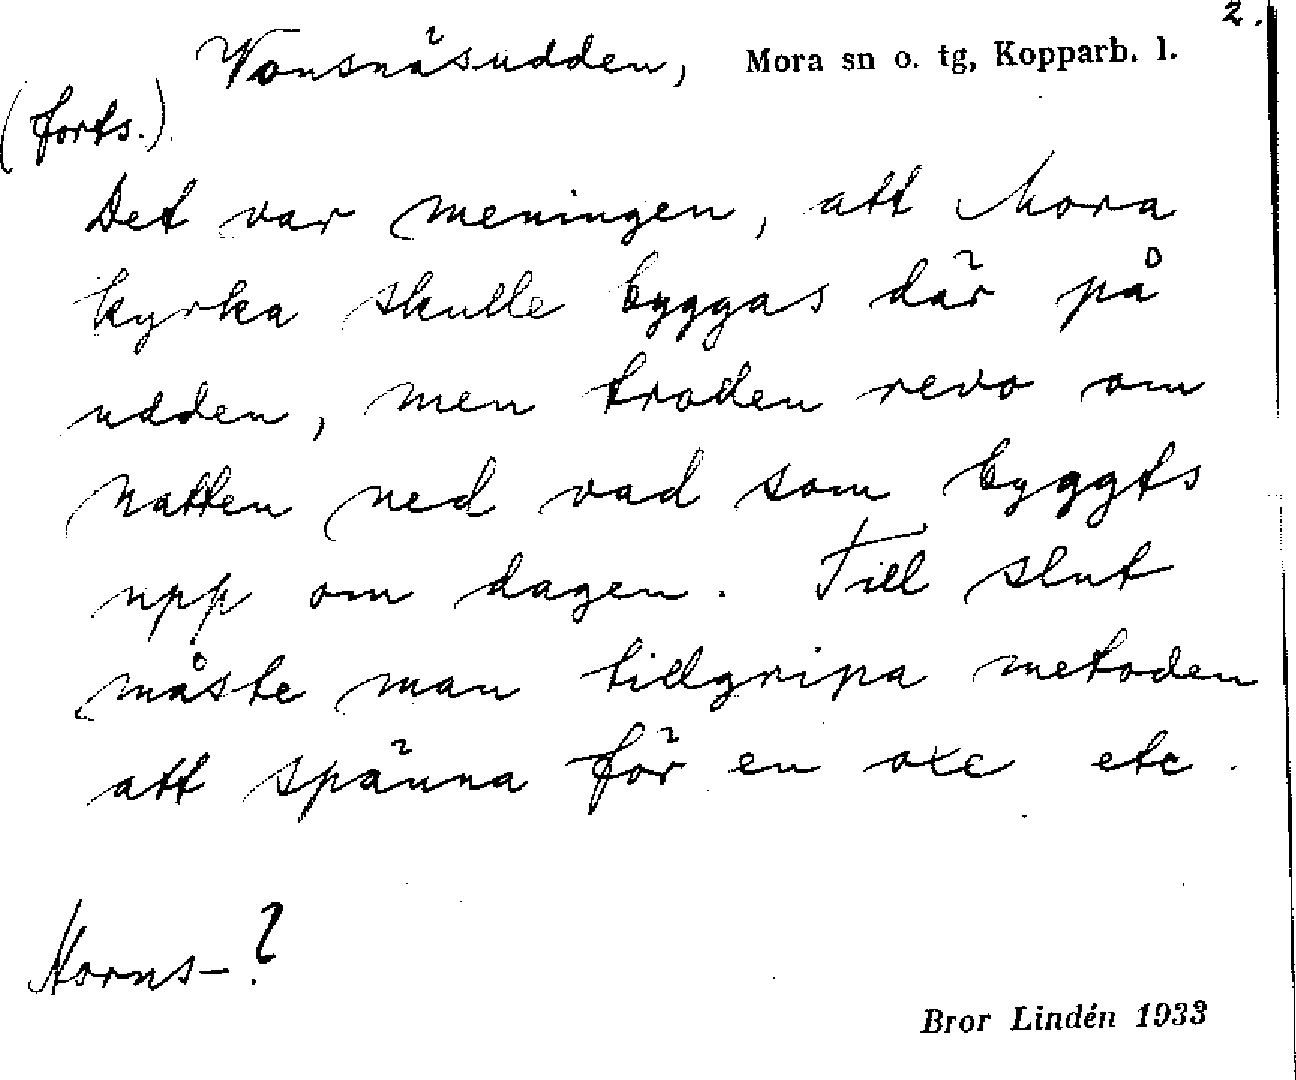 2.
Vonsnäsudden, Mora sn o. tg, Kopparb. l.
(forts.)
Det var meningen, att Mora
kyrka skulle byggas där på
udden, men troden revo om
natten ned vad som byggts
upp om dagen. Till slut
måste man tillgripa metoden
att spänna för en oxe etc.
Horns-?
Bror Lindén 1933